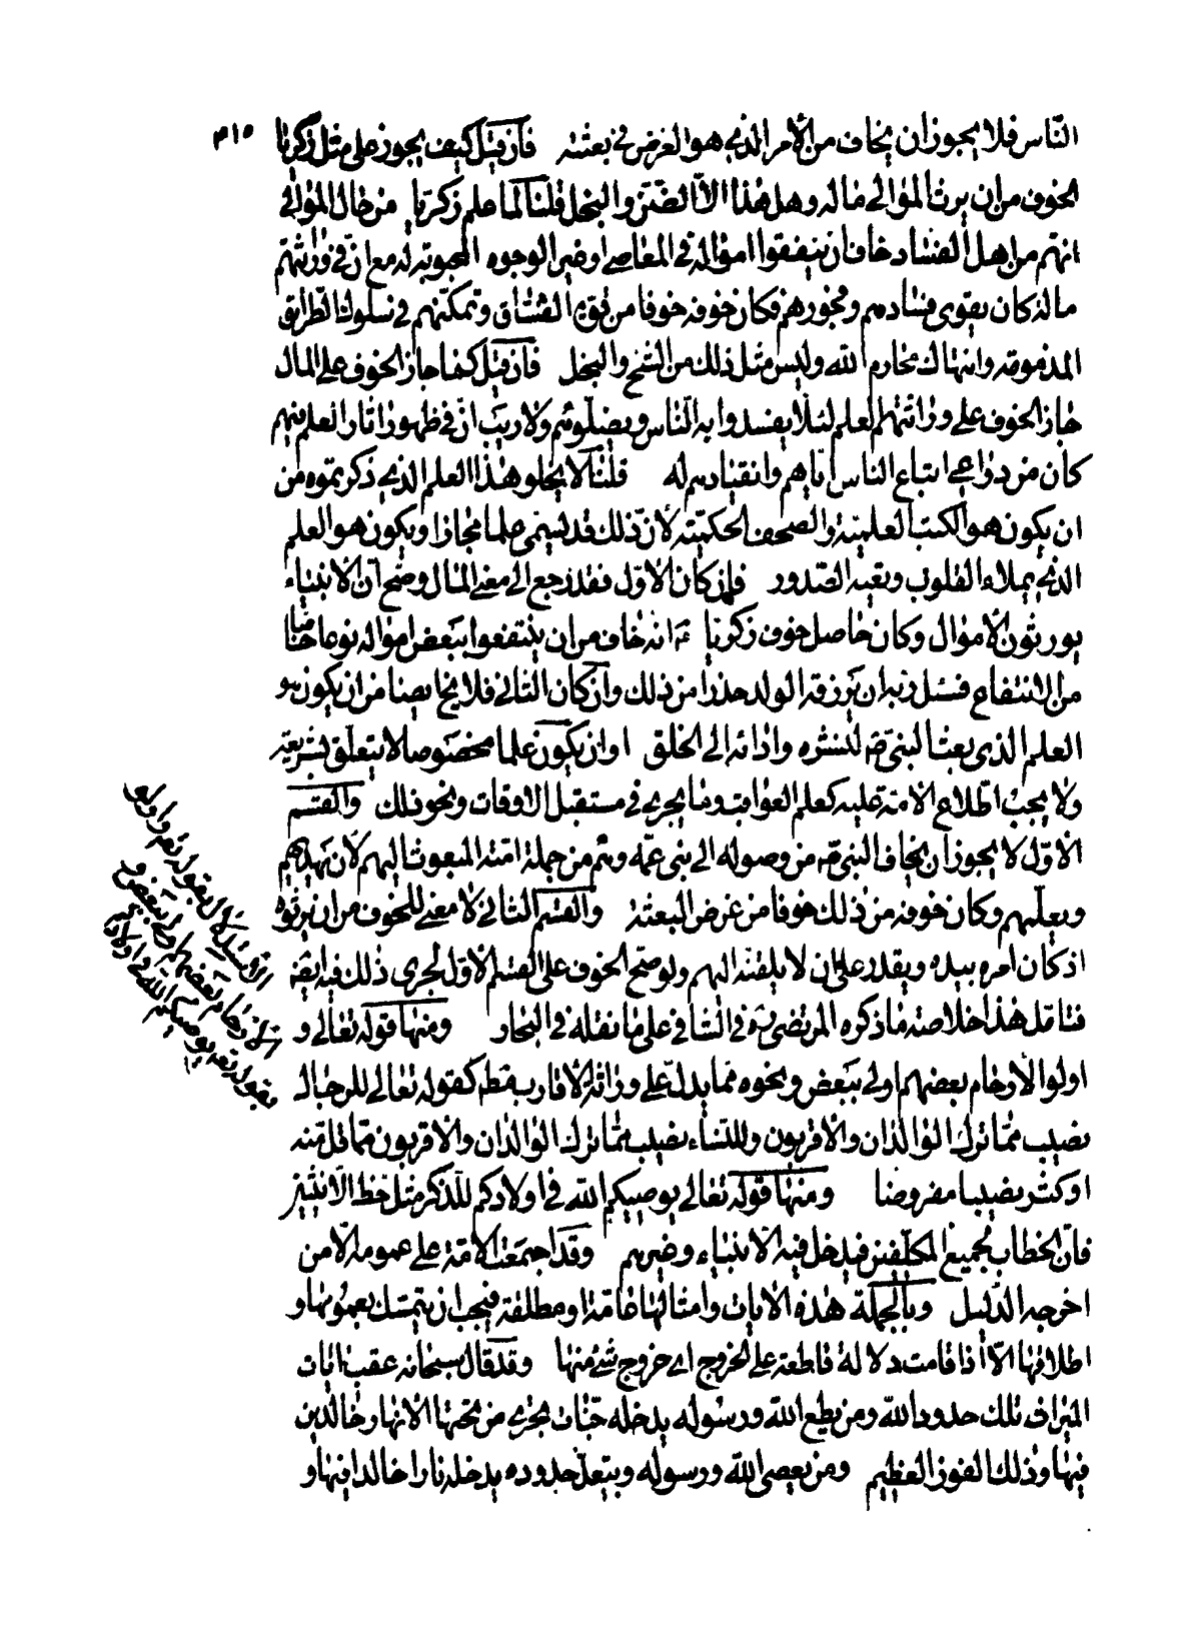 ٣١٥
الناس فلا يجوز ان يخاف من الأمر الذي هو الغرض في بعثته فان قيل كيف يجوز على مثل زكريا
الخوف من ان يرث الموالي ماله وهل هذا الا الضن والبخل قلنا لما علم زكريا من حال الموالي
انهم من اهل الفساد خاف ان ينفقوا امواله في المعاصي او غير الوجوه المحبوبة له مع ان في وراثتهم
ماله كان يقوى فسادهم وفجورهم فكان خوفه خوفا من قوة الفساق وتمكنهم في سلوك الطرايق
المذمومة وانتهاك محارم الله وليس مثل ذلك من الشح والبخل فان قيل كما جاز الخوف على المال
جاز الخوف على وراثتهم العلم لئلا يفسدوا به الناس ويضلوهم ولا ريب ان في ظهور اثار العلم فيهم
كان من دواعي اتباع الناس اياهم وانقيادهم له قلنا لا يخلو هذا العلم الذي ذكرتموه من
ان يكون هو الكتب العلمية والصحف الحكمية لان ذلك قد يسمى علما مجازا او يكون هو العلم
الذي يملاء القلوب وتعيه الصدور فان كان الاول فقد رجع الى معنى المال وصح ان الانبياء
يورثون الأموال وكان حاصل خوف زكريا انه خاف من ان ينتفعوا ببعض امواله نوعا خاصا
من الانتفاع فسئل ربه ان يرزقه الولد حذرا من ذلك وان كان الثاني فلا يخا يصنا من ان يكون هو
العلم الذي بعث النبي لنشره وادائه الى الخلق او ان يكون علما مخصوصا لا يتعلق بشريعة
ولا يجب اطلاع الامة عليه كعلم العواقب وما يجري في مستقبل الاوقات ونحو ذلك والقسم
الاول لا يجوز ان يخاف النبي من وصوله الى بني عمه وهم من جملة امته المبعوث اليهم لان يهديهم
ويعلمهم وكان خوفه من ذلك خوفا من غرض البعثة والقسم الثاني لا معنى للخوف من ان يرثوه
اذ كان امره بيده ويقدر على ان لا يلقنه اليهم ولو صح الخوف على القسم الاول لجرى ذلك فيه ايضا
فتامل هذا خلاصة ما ذكره المرتضى في الشافي على ما نقله في البحار ومنها قوله تعالى و
اولوا الأرحام بعضهم اولى ببعض ونحوه مما يدل على وراثة الأقارب كقوله تعالى للرجال
نصيب مما ترك الوالدان والاقربون وللنساء نصيب مما ترك الوالدان والاقربون مما قل منه
او كثر نصيبا مفروضا ومنها قوله تعالى يوصيكم الله في اولادكم للذكر مثل حظ الانثيين
فان الخطاب لجميع المكلفين فيدخل فيه الانبياء وغيرهم وقد اجمعت الامة على عمومه الا من
اخرجه الدليل وبالجملة هذه الايات وامثالها عامة او مطلقة فيجب ان يتمسك بعمومها و
اطلاقها الا اذا قامت دلالة قاطعة على الخروج اي خروج شئ منها وقد قال سبحانه عقب ايات
الميراث تلك حدود الله ومن يطع الله ورسوله يدخله جنات تجري من تحتها الأنهار خالدين
فيها وذلك الفوز العظيم ومن يعصى الله ورسوله ويتعد حدوده يدخله نارا خالدا فيها و
الاستدلال بقوله تعم واولو
الارحام بعضهم اولى ببعض و
بقوله تعم يوصيكم الله في اولادكم